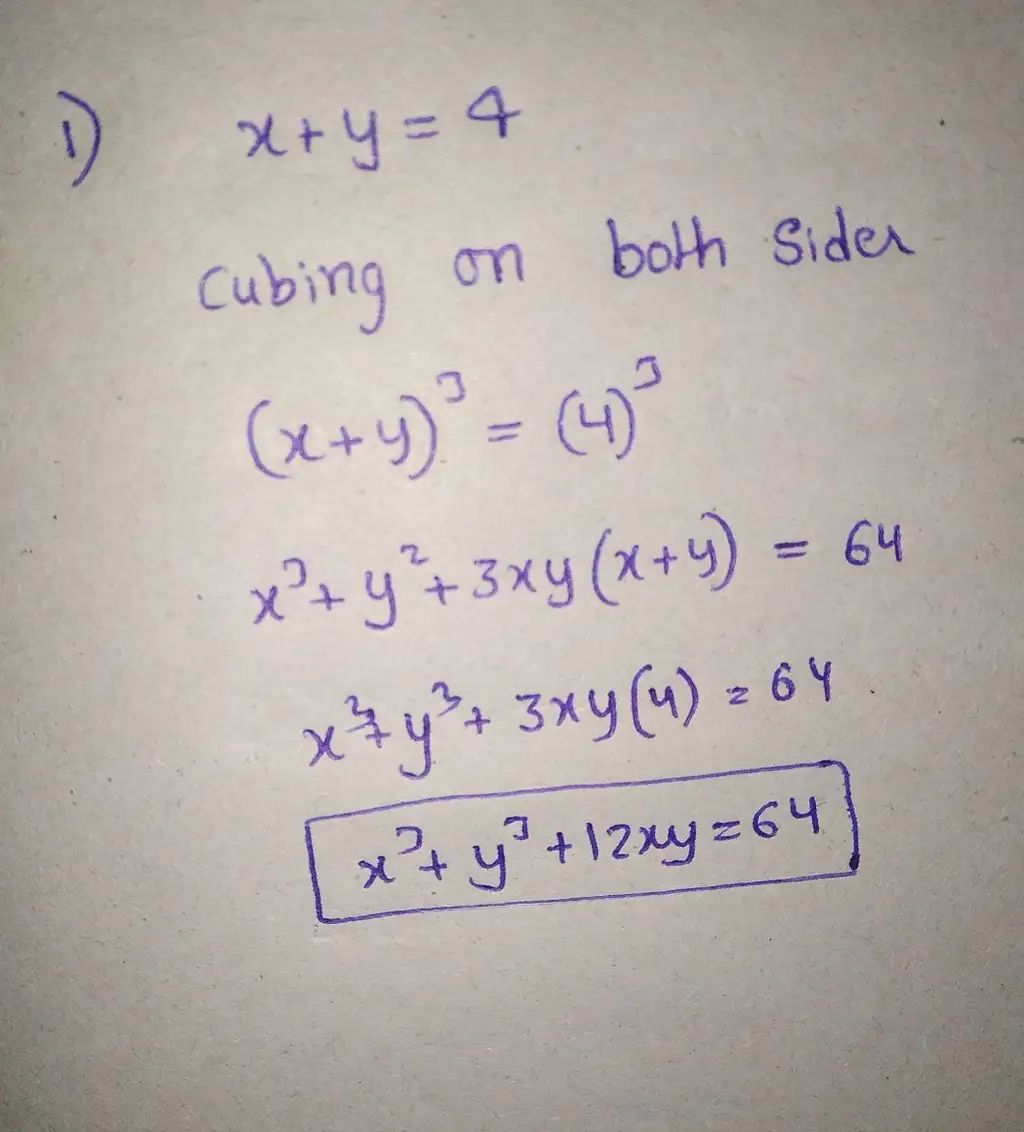 1) x+y=4
Cubing on both Sides
(x+y)³ = (4)³
x³+y²+3xy(x+y) = 64
x³+y³+3xy(4)=64
x³+y³+12xy=64